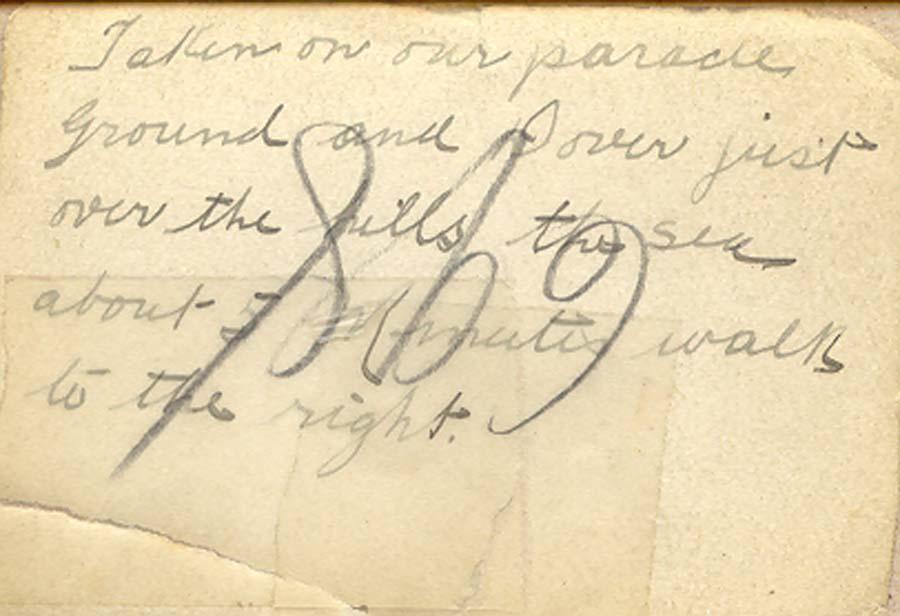 Taken on our parade
Ground and Dover just
over the hills the sea
about 5 minutes walk
to the right.
869